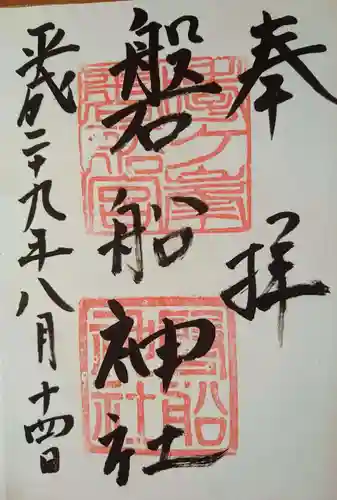 奉拝
磐船神社
平成二十九年八月十四日
磐船神社